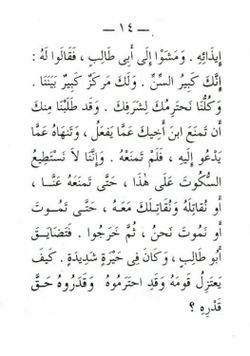 — ١٤ —
إِيذَائِهِ . وَمَشَوْا إِلَى أَبِي طَالِبٍ ، فَقَالُوا لَهُ :
إِنَّكَ كَبِيرُ السِّنِّ . وَلَكَ مَرْكَزٌ كَبِيرٌ بَيْنَنَا .
وَكُلُّنَا نَحْتَرِمُكَ لِشَرَفِكَ . وَقَد طَلَبْنَا مِنكَ
أَن تَمْنَعَ ابنَ أَخِيكَ عَمَّا يَفْعَلُ ، وَتَنهَاهُ عَمَّا
يَدْعُو إِلَيْهِ ، فَلَمْ تَمنَعْهُ . وَإِنَّنَا لَا نَسْتَطِيعُ
السُّكُوتَ عَلَى هٰذَا ، حَتَّى تَمنَعَهُ عَنَّا ،
أَو نُقَاتِلَهُ وَنُقَاتِلَكَ مَعَهُ ، حَتَّى تَمُوتَ
أَو نَمُوتَ نَحنُ ، ثُمَّ خَرَجُوا . فَتَضَايَقَ
أَبو طَالِبٍ ، وَكَانَ فِى حَيْرَةٍ شَدِيدَةٍ . كَيفَ
يَعتَزِلُ قَومَهُ وَقَدِ احتَرَمُوهُ وَقَدَرُوهُ حَقَّ
قَدْرِهِ ؟